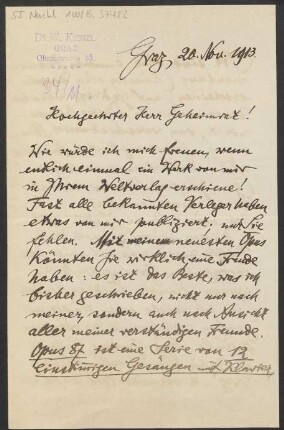 Dr. W. Kienzl
GRAZ
Graz, 20. Nov. 1913.
Hochgeehrter Herr Geheimrat!
Wie würde ich mich freuen, wenn
endlich einmal ein Werk von mir
in Ihrem Weltverlag erschiene!
Fast alle bekannten Verleger haben
etwas von mir publiziert, nur Sie
fehlen. Mit meinem neuesten Opus
könnten Sie wirklich eine Freude
haben: es ist das Beste, was ich
bisher geschrieben, nicht nur nach
meiner, sondern auch nach Ansicht
aller meiner verständigen Freunde.
Opus 87 ist eine Serie von 12
einstimmigen Gesängen mit Klavier